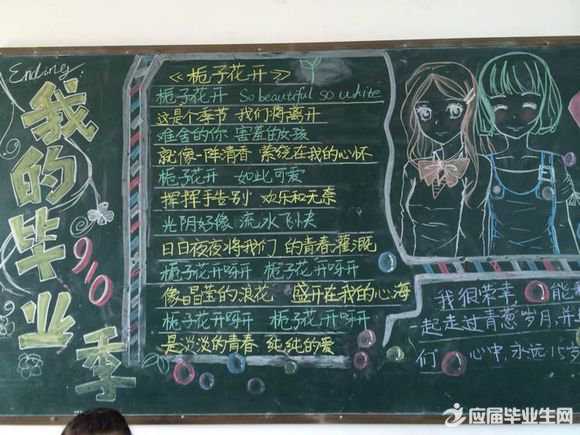 Ending
我的毕业季
910
《栀子花开》
栀子花开 So beautiful so white
这是个季节 我们将离开
难舍的你 害羞的女孩
就像一阵清香 萦绕在我的心怀
栀子花开 如此可爱
挥挥手告别 欢乐和无奈
光阴好像 流水飞快
日日夜夜将我们 的青春灌溉
栀子花开呀开 栀子花开呀开
像晶莹的浪花 盛开在我的心海
栀子花开呀开 栀子花开呀开
是淡淡的青春 纯纯的爱
我很荣幸, 能
一起走过青葱岁月,并
们 心中,永远15岁
应届毕业生网